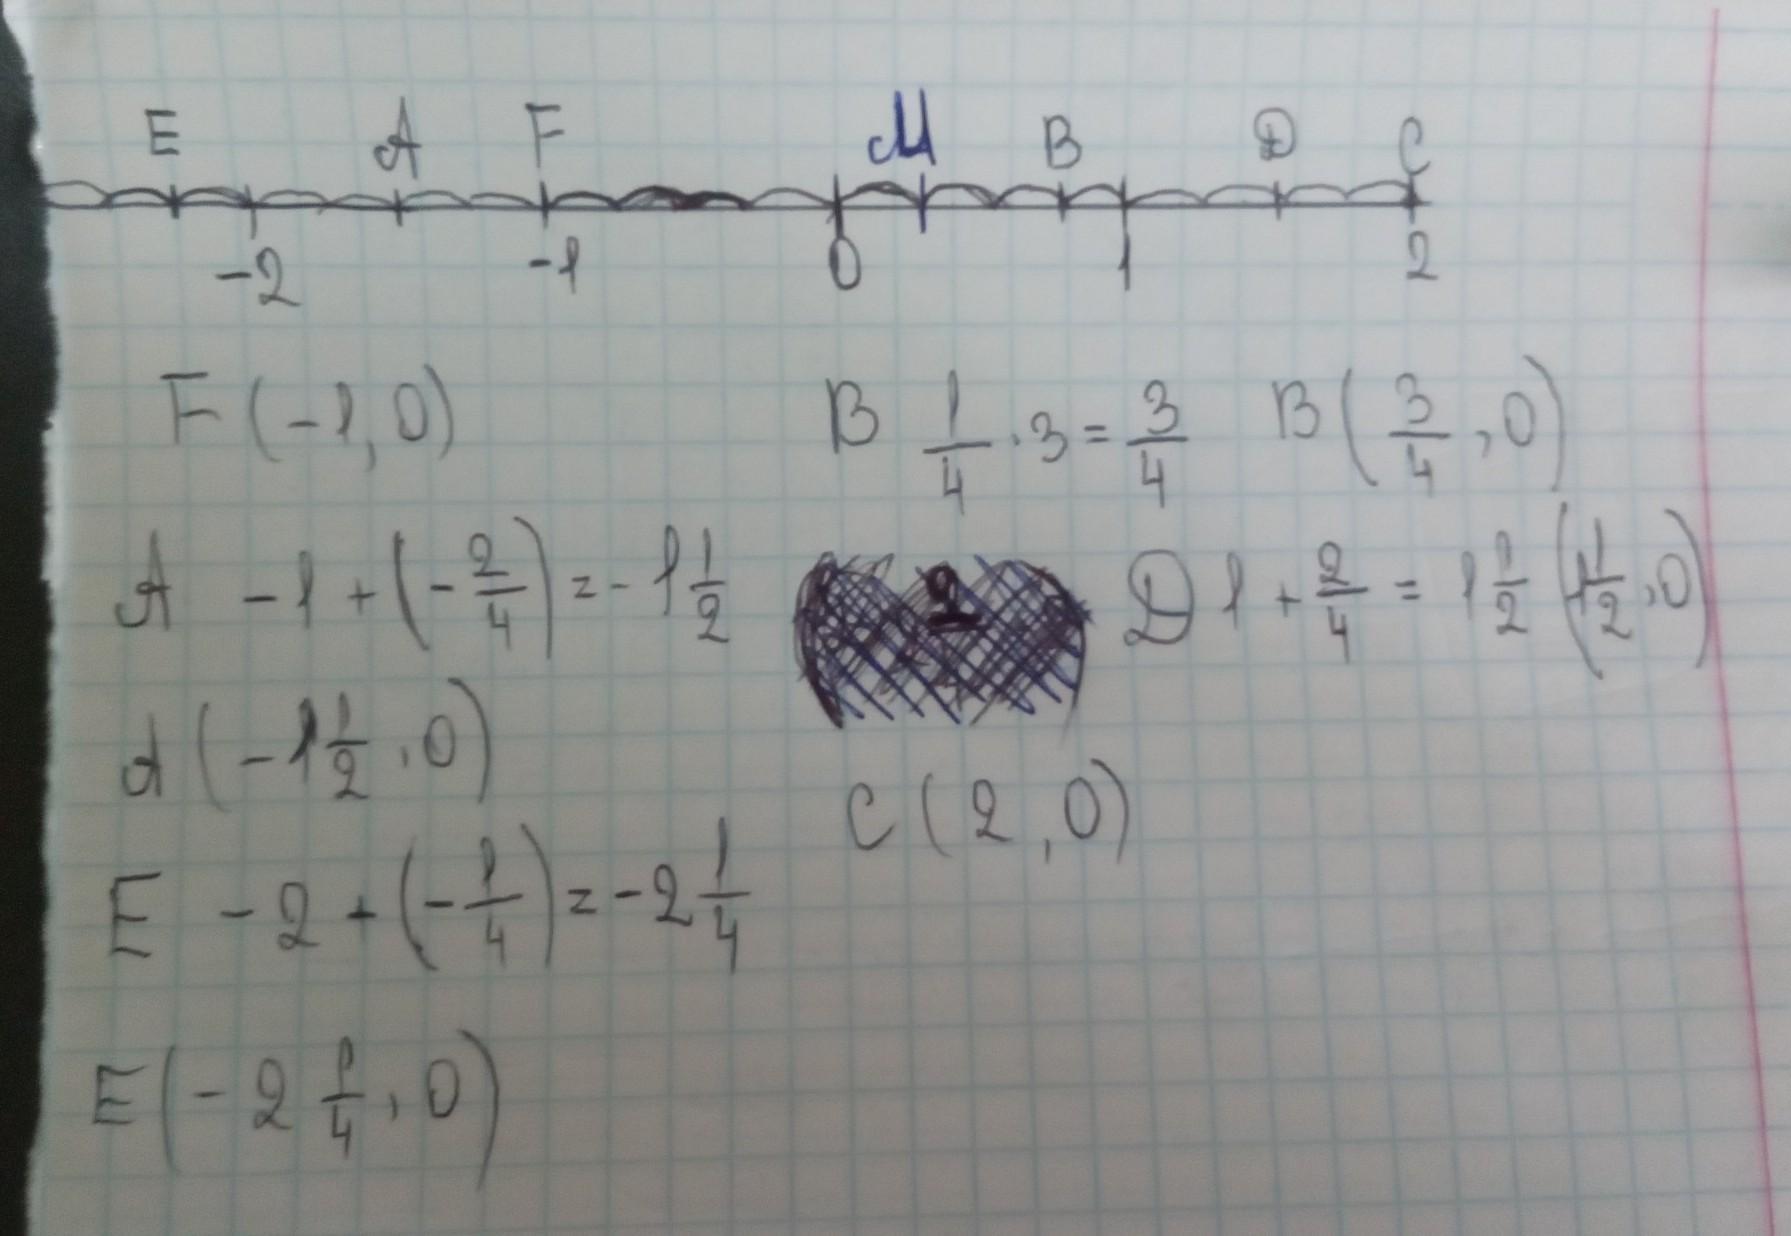 E A F М B D C
-2 -1 0 1 2
F (-1, 0)
B 1/4 · 3 = 3/4 B (3/4, 0)
A -1 + (-2/4) = -1 1/2
D 1 + 2/4 = 1 1/2 (1 1/2, 0)
A (-1 1/2, 0)
C (2, 0)
E -2 + (-1/4) = -2 1/4
E (-2 1/4, 0)